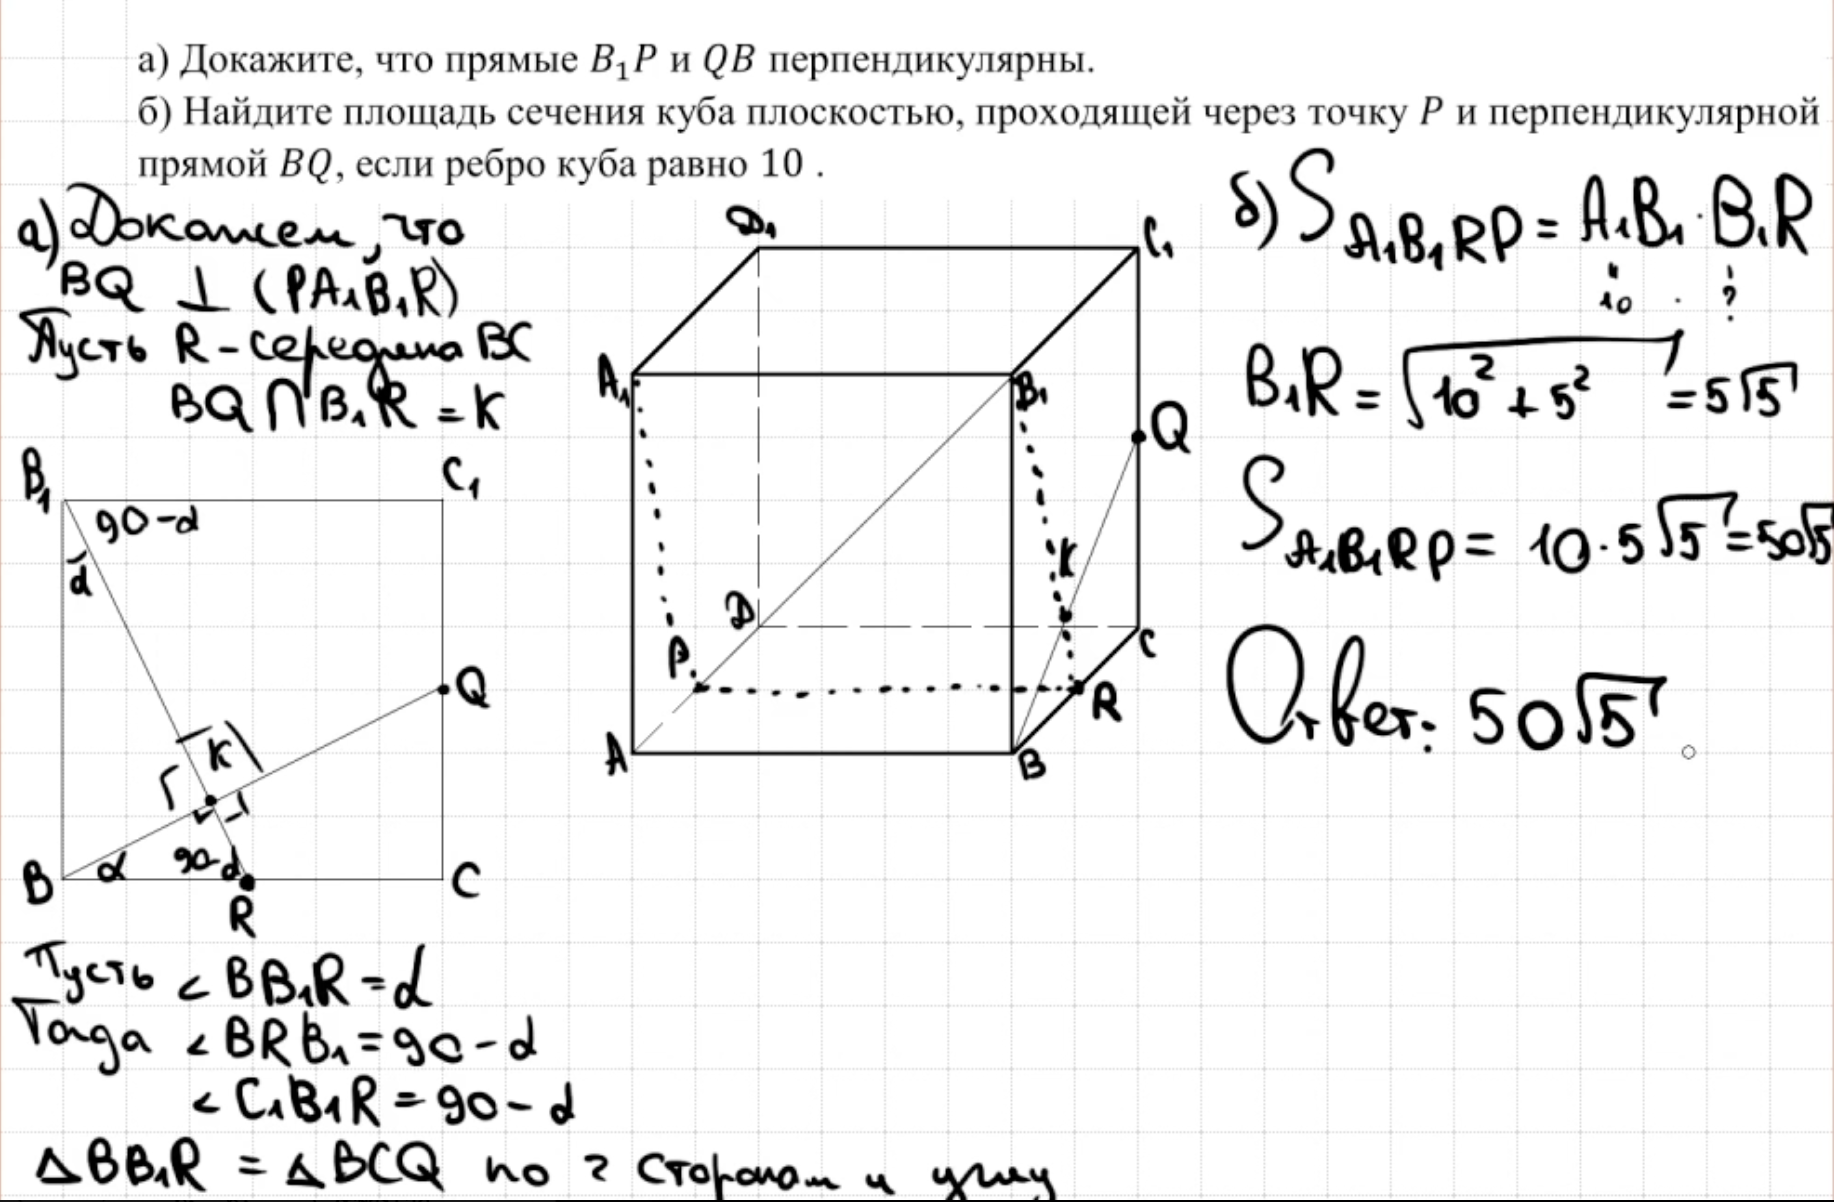 а) Докажите, что прямые B₁P и QB перпендикулярны.
б) Найдите площадь сечения куба плоскостью, проходящей через точку P и перпендикулярной
прямой BQ, если ребро куба равно 10 .
а) Докажем, что
BQ ⊥ (PA₁B₁R)
Пусть R - середина BC
BQ ∩ B₁R = K
B₁
C₁
90-α
α
Q
K
B
α
90-α
R
C
Пусть ∠BB₁R = α
Тогда ∠BRB₁ = 90 - α
∠C₁B₁R = 90 - α
△BB₁R = △BCQ по 2 сторонам и углу
D₁
C₁
A₁
B₁
Q
K
D
P
C
R
A
B
б) S A₁B₁RP = A₁B₁ · B₁R
10 · ?
B₁R = √10² + 5² = 5√5
S A₁B₁RP = 10 · 5√5 = 50√5
Ответ: 50√5